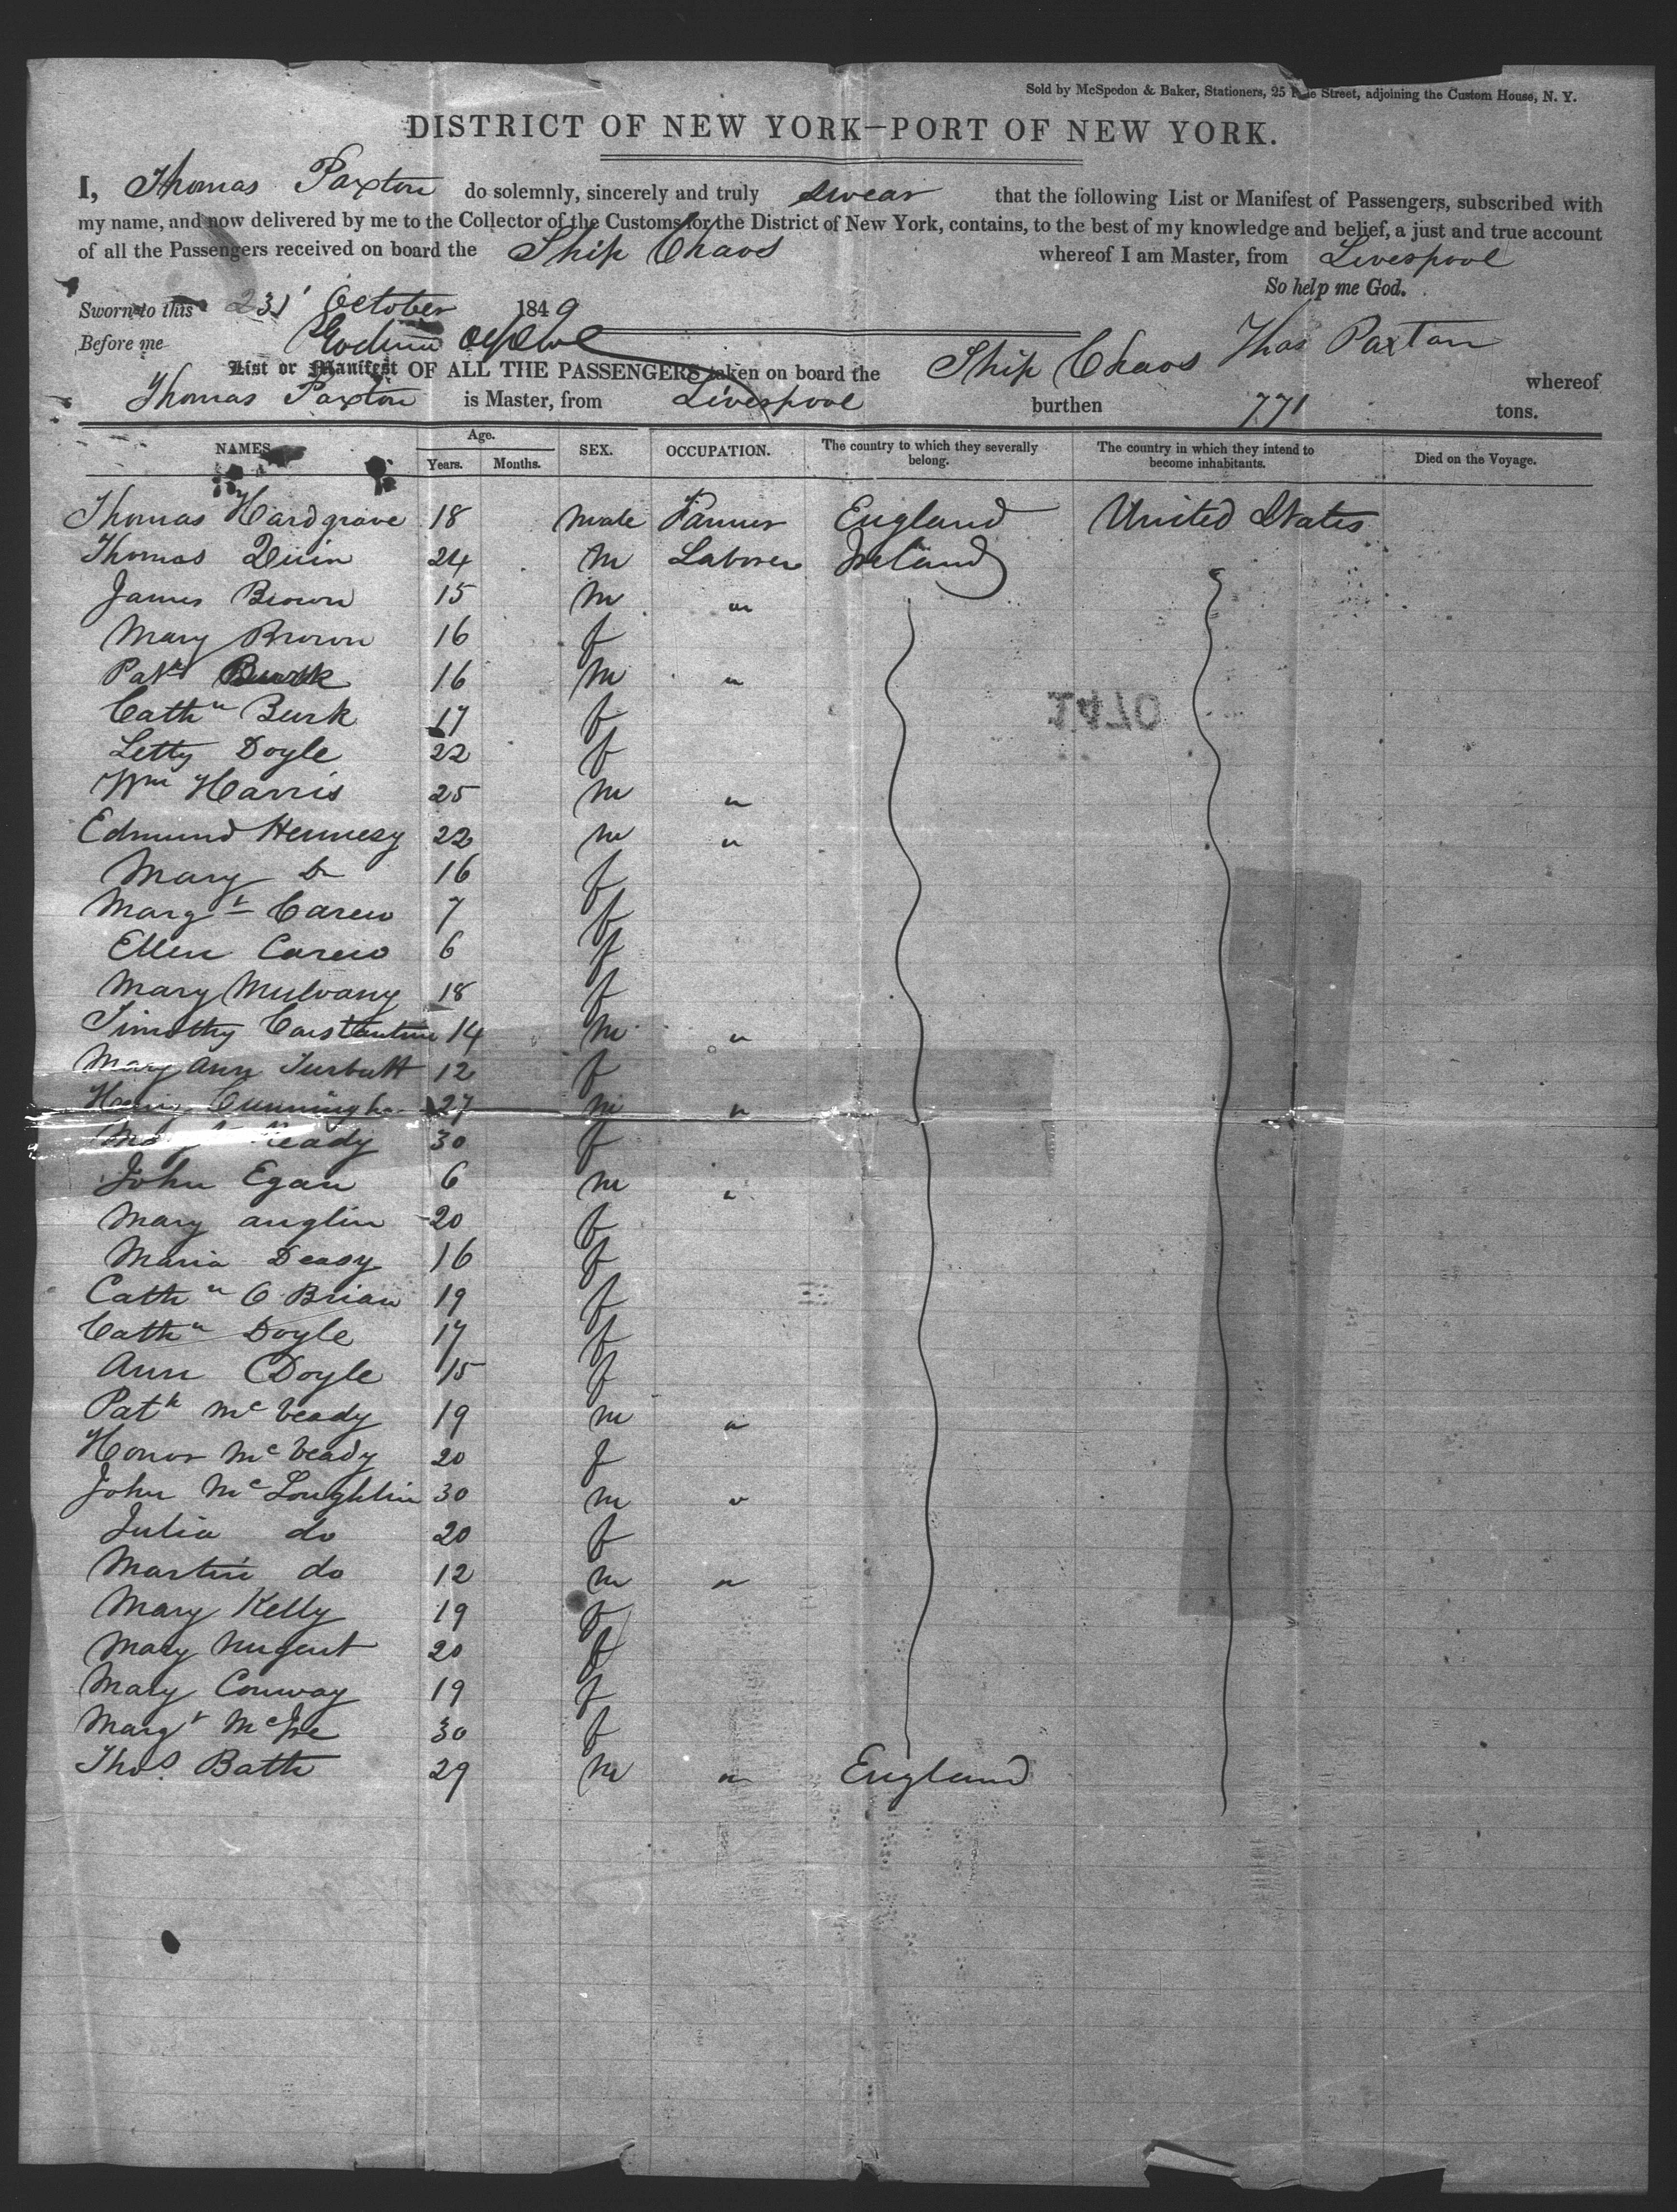 Sold by McSpedon & Baker, Stationers, 25 Street, adjoining the Custom House, N. Y.
DISTRICT OF NEW YORK—PORT OF NEW YORK.
I, Thomas Paxton do solemnly, sincerely and truly swear that the following List or Manifest of Passengers, subscribed with
my name, and now delivered by me to the Collector of the Customs for the District of New York, contains, to the best of my knowledge and belief, a just and true account
of all the Passengers received on board the Ship Chaos whereof I am Master, from Liverpool
So help me God.
Sworn to this 23 October 1849
Before me Thos Paxton
List or Manifest OF ALL THE PASSENGERS taken on board the Ship Chaos whereof
Thomas Paxton is Master, from Liverpool burthen 771 tons.
NAMES Age. Years. Months. SEX. OCCUPATION. The country to which they severally belong. The country in which they intend to become inhabitants. Died on the Voyage.
Thomas Hardgrave 18 Male Farmer England United States
Thomas Quin 24 M Laborer Ireland
James Brown 15 M "
Mary Brown 16 f
Patk Burk 16 M "
Cathn Burk 17 f
Letty Doyle 22 f
1470
Wm Harris 25 M "
Edmund Hennesy 22 M "
Mary Do 16 f
Margt Carew 7 f
Ellen Carew 6 f
Mary Mulvany 18 f
Timothy Constantine 14 M "
Mary Ann Turbutt 12 f
Cunningham 27 M "
Ready 30 f
John Egan 6 M "
Mary Anglin 20 f
Maria Deasy 16 f
Cathn O Brian 19 f
Cathn Doyle 17 f
Ann Doyle 15 f
Patk McCready 19 M "
Honor McCready 20 f
John McLoughlin 30 M "
Julia do 20 f
Martin do 12 M "
Mary Kelly 19 f
Mary Nugent 20 f
Mary Conway 19 f
Margt 30 f
Thos Bath 29 M " England